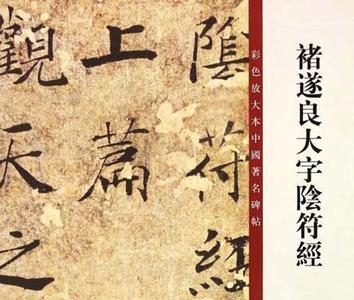 褚遂良大字陰符經
彩色放大本中國著名碑帖
陰符經
上篇
觀天之